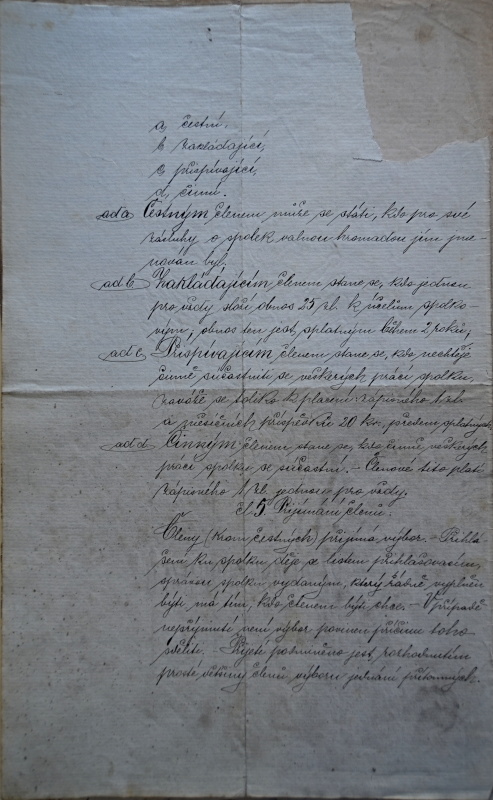 a, čestní.
b, zakládající,
c, přispívající,
d, činní.
ad a, Čestným členem může se státi, kdo pro své
zásluhy o spolek valnou hromadou jím jme-
nován byl.
ad b, Zakládajícím členem stane se, kdo jednou
pro vždy složí obnos 25 zl. k účelům spolko-
vým; obnos ten jest splatným během 2 roků;
ad c, Přispívajícím členem stane se, kdo nechtěje
činně súčastniti se veškerých prací spolku,
zaváže se toliko k placení zápisného 1 zl.
a měsíčních příspěvků 20 kr. předem splatných.
ad d, Činným členem stane se, kdo činně veškerých
prací spolku se súčastní. – Členové tito platí
zápisného 1 zl. jednou pro vždy.
čl. 5. Přijímání členů.
Členy (krom čestných) přijímá výbor. – Přihlá-
šení ku spolku děje se listem přihlašovacím,
správou spolku vydaným, který řádně vyplněn
býti má tím, kdo členem býti chce. – V případě
nepřijmutí není výbor povinen příčinu toho
sděliti. Přijetí podmíněno jest rozhodnutím
prosté většiny členů výboru jednání přítomných.